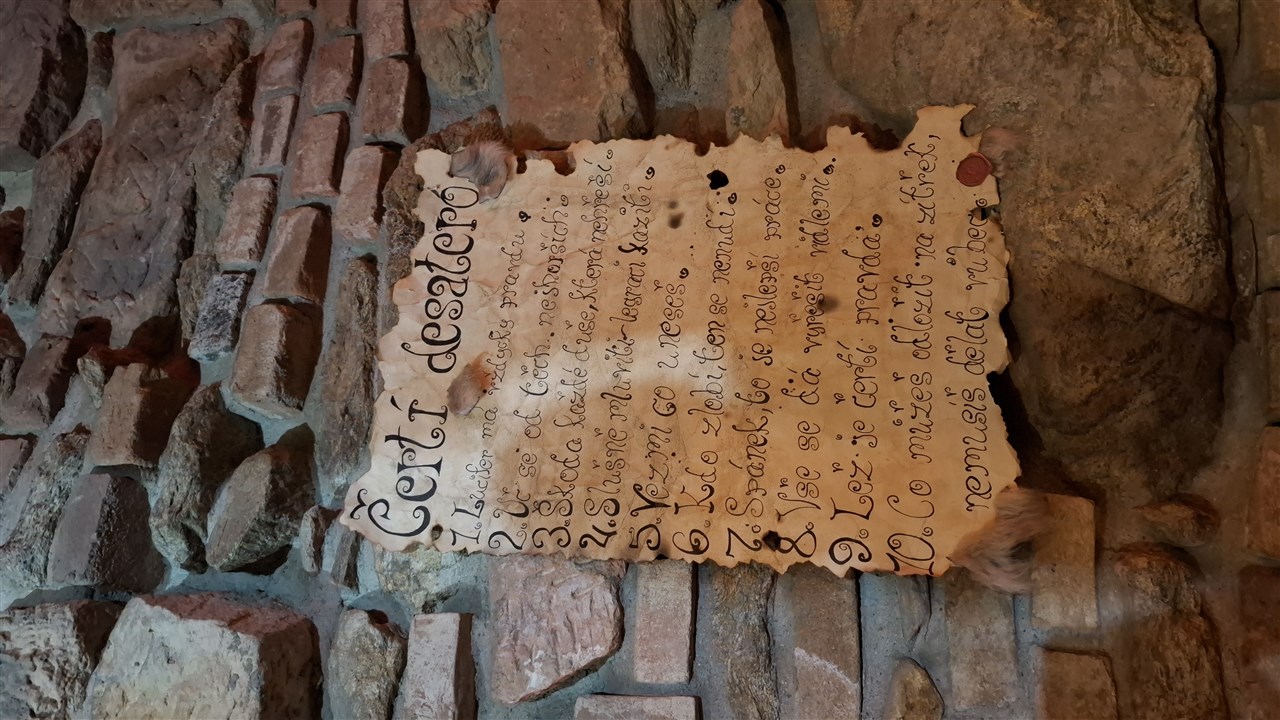 Čertí desatero
1. Lucifer má vždycky pravdu.
2. Uč se od těch nejhorších.
3. Škoda každé duše, která nehřeší.
4. Slušně mluviti - legraci kaziti.
5. Vezmi co uneseš.
6. Kdo zlobí, ten se nenudí.
7. Spánek, to je nejlepší práce.
8. Vše se dá vyřešit násilím.
9. Lež je čertí pravda.
10. Co můžeš odložit na zítřek,
nemusíš dělat vůbec.